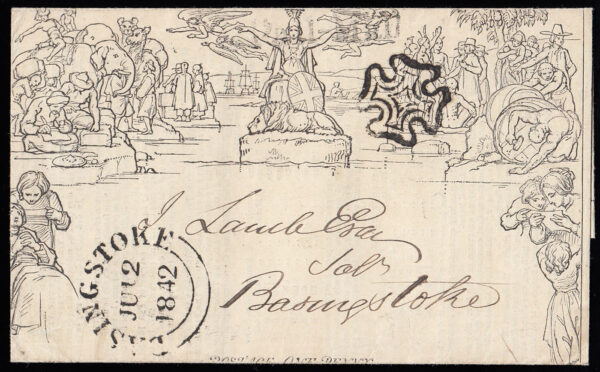 BASINGSTOKE
JU 12
1842
J. Lamb Esq
Solr
Basingstoke
POSTAGE ONE PENNY